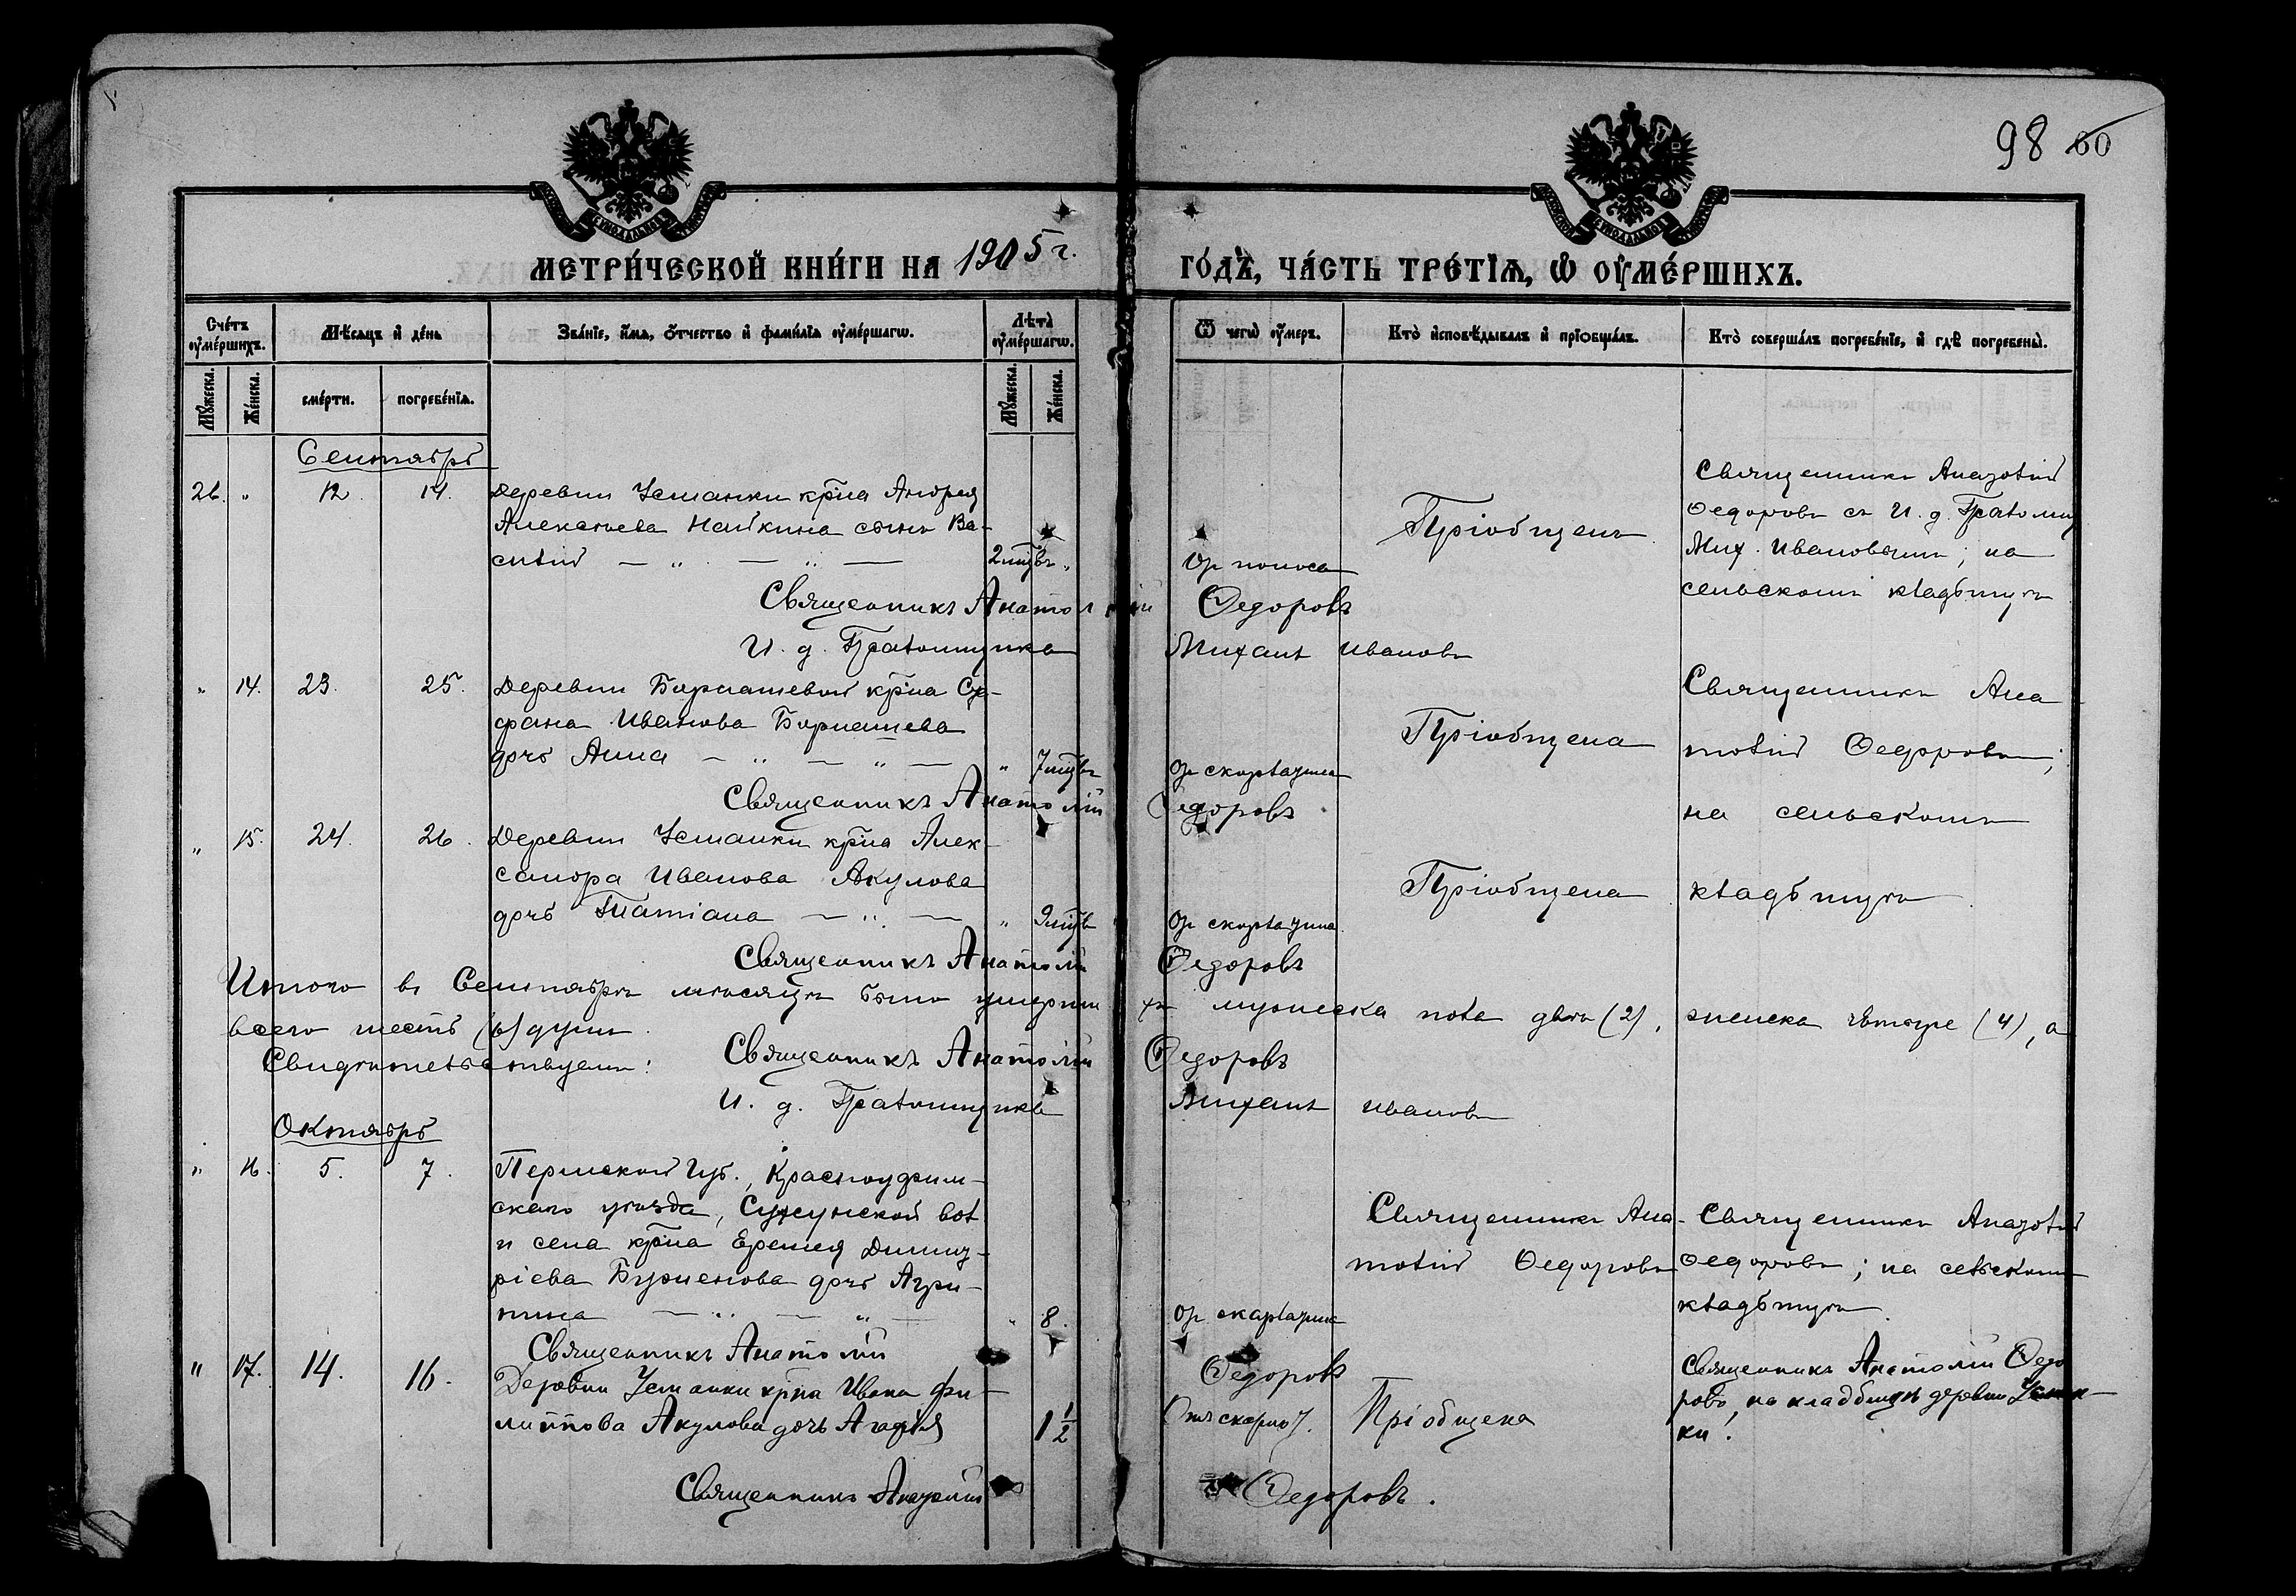 98 60
МЕТРИ́ЧЕСКОЙ КНИ́ГИ НА 1905 г.
ГО́ДЪ, ЧА́СТЬ ТРЕ́ТІѦ, Ѡ҆ ОУ҆МЕ́РШИХЪ.
Сче́тъ оу҆ме́ршихъ.
Мѣ́сяцъ и҆ де́нь
Зва́нїе, и҆́мѧ, ѻ҆́тчество и҆ фами́лїѧ оу҆ме́ршагѡ.
Лѣ́та оу҆ме́ршагѡ.
Ѿ чегѡ̀ оу҆́меръ.
Кто̀ и҆сповѣ́дывалъ и҆ прїѡбща́лъ.
Кто̀ соверша́лъ погребе́нїе, и҆ гдѣ̀ погребены̀.
Му́жеска. Же́нска. сме́рти. погребе́нїѧ. Му́жеска. Же́нска.
Сентябрь
26. " 12. 14. Деревни Успанки кр̃на Андрея
Алексѣева Найкина сынъ Ва-
силій — " — " — 2 мѣс. "
От поноса
Пріобщенъ
Священникъ Анатолій
Ѳедоровъ съ И. д. Псаломщ.
Мих. Ивановымъ; на
сельскомъ кладбищѣ
Священникъ Анатолій Ѳедоровъ
И. д. Псаломщика Михаилъ Ивановъ
" 14. 23. 25. Деревни Бурнашевой кр̃на Сте-
фана Иванова Бурнашева
дочь Анна — " — " — " 7 мѣс.
От скарлатина
Пріобщена
Священникъ Ана
толій Ѳедоровъ;
на сельскомъ
Священникъ Анатолій Ѳедоровъ
" 15. 24. 26. Деревни Успанки кр̃на Алек-
сандра Иванова Акулова
дочь Татіана — " — " 9 мѣс.
От скарлатина
Пріобщена
кладбищѣ
Священникъ Анатолій Ѳедоровъ
Итого въ Сентябрѣ мѣсяцѣ было умерши хъ мужеска пола два (2), женска четыре (4), а
всего шесть (6) душъ.
Свидѣтельствуемъ: Священникъ Анатолій Ѳедоровъ
И. д. Псаломщика Михаилъ Ивановъ
Октябрь
" 16. 5. 7. Пермской губ., Красноуфим-
скаго уѣзда, Суксунской вол.
и села кр̃на Еремея Димит-
ріева Бурменова дочь Агри-
пина — " — " — " 8.
От скарлатин
Священникъ Ана-
толій Ѳедоровъ
Священникъ Анатолій
Ѳедоровъ; на сельскомъ
кладбищѣ
Священникъ Анатолій Ѳедоровъ
" 17. 14. 16. Деревни Успанки кр̃на Ивана Фи-
липпова Акулова дочь Агафія 1 1/2
Отъ скарлат.
Пріобщена
Священникъ Анатолій Ѳедо
ровъ, на кладбищѣ деревни Успан-
ки.
Священникъ Анатолій Ѳедоровъ.